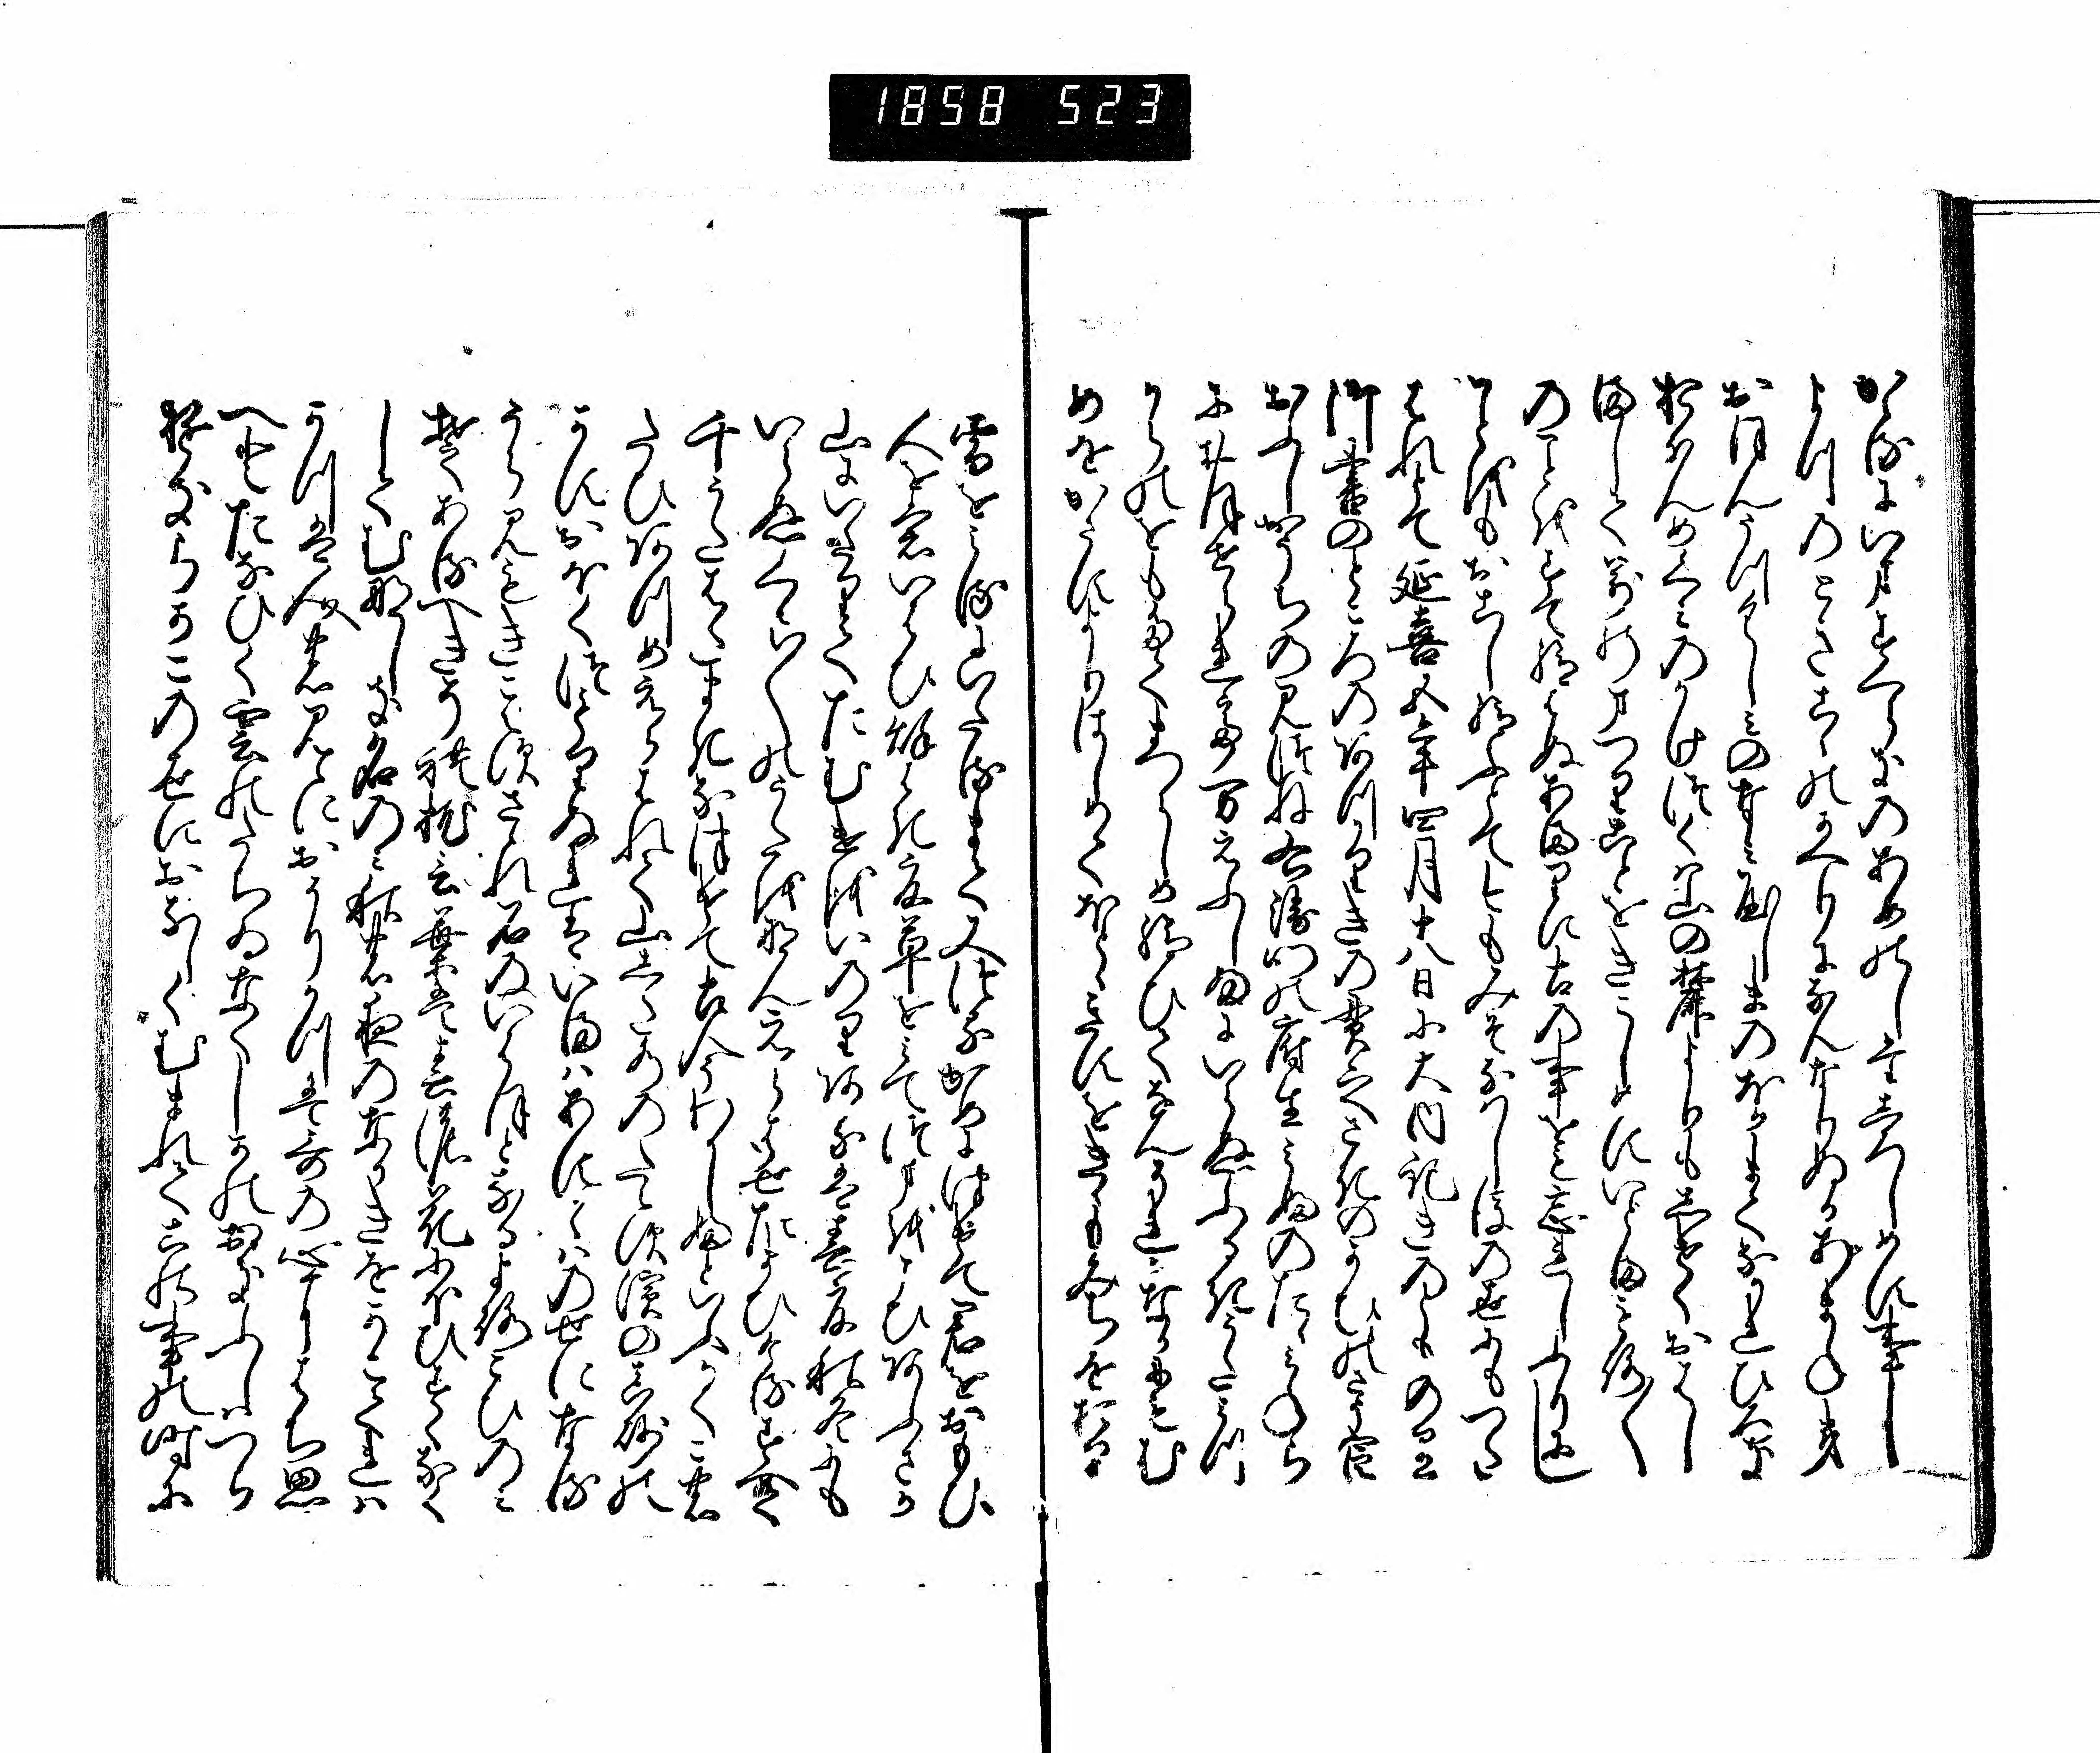 かゝるにいますへらきのあめのしたしろしめす事
よつのときこゝのかへりになんなりぬるあまねき
おほんうつくしみのなみやしまのほかまてなかれひろき
おほんめくみのかけつくは山の麓よりもしけくおはし
ましてよろつのまつりことをきこしめすいとまもろ〱
のことをすて給はぬあまりに古の事をも忘れしふりにし
ことをもおこし給ふとて今もみそなはし後の世にもつた
はれとて延喜五年四月十八日に大内記きのとものり
御書のところのあつかりきの貫之さきのかひのさう官
おふしかうちの見つね右衛門の府生みふのたゝみねら
におほせられて万えふしふにいらぬふるきうたみつ
からのをもたてまつらしめ給ひてなんそれかなかにもむ
めをかさすよりはしめてほとゝきすをきゝもみちをおり
雪をみるにいたるまて又つるかめにつけて君をおもひ
人を"
いはひ秋はき夏草をみてつまをこひあふさか
山にいたりてたむけをいのりあるは春夏秋冬にも
いらぬくさ〱のうたをなんえらはせたまひけるすへて
千うたはたまきなつけて古今うたしふといふかくこの
たひあつめえらはれて山したみつのたえす濱の真砂の
かすおほくつもりぬれはいまはあすかゝはのせになる
うらみもきこえすさゝれ石のいはほとなるよろこひのみ
そあるへきそれ枕言葉は春の花にほひすくなく
してむなしき名のみ秋の夜のなかきをかこてれは
かつは人の見ゝにおそりかつは哥の心にはち思
へとたなひく雲のたちゐなくしかのおきふしはつら
ゆきらかこの世におなしくむまれてこの事の時に
1858 523